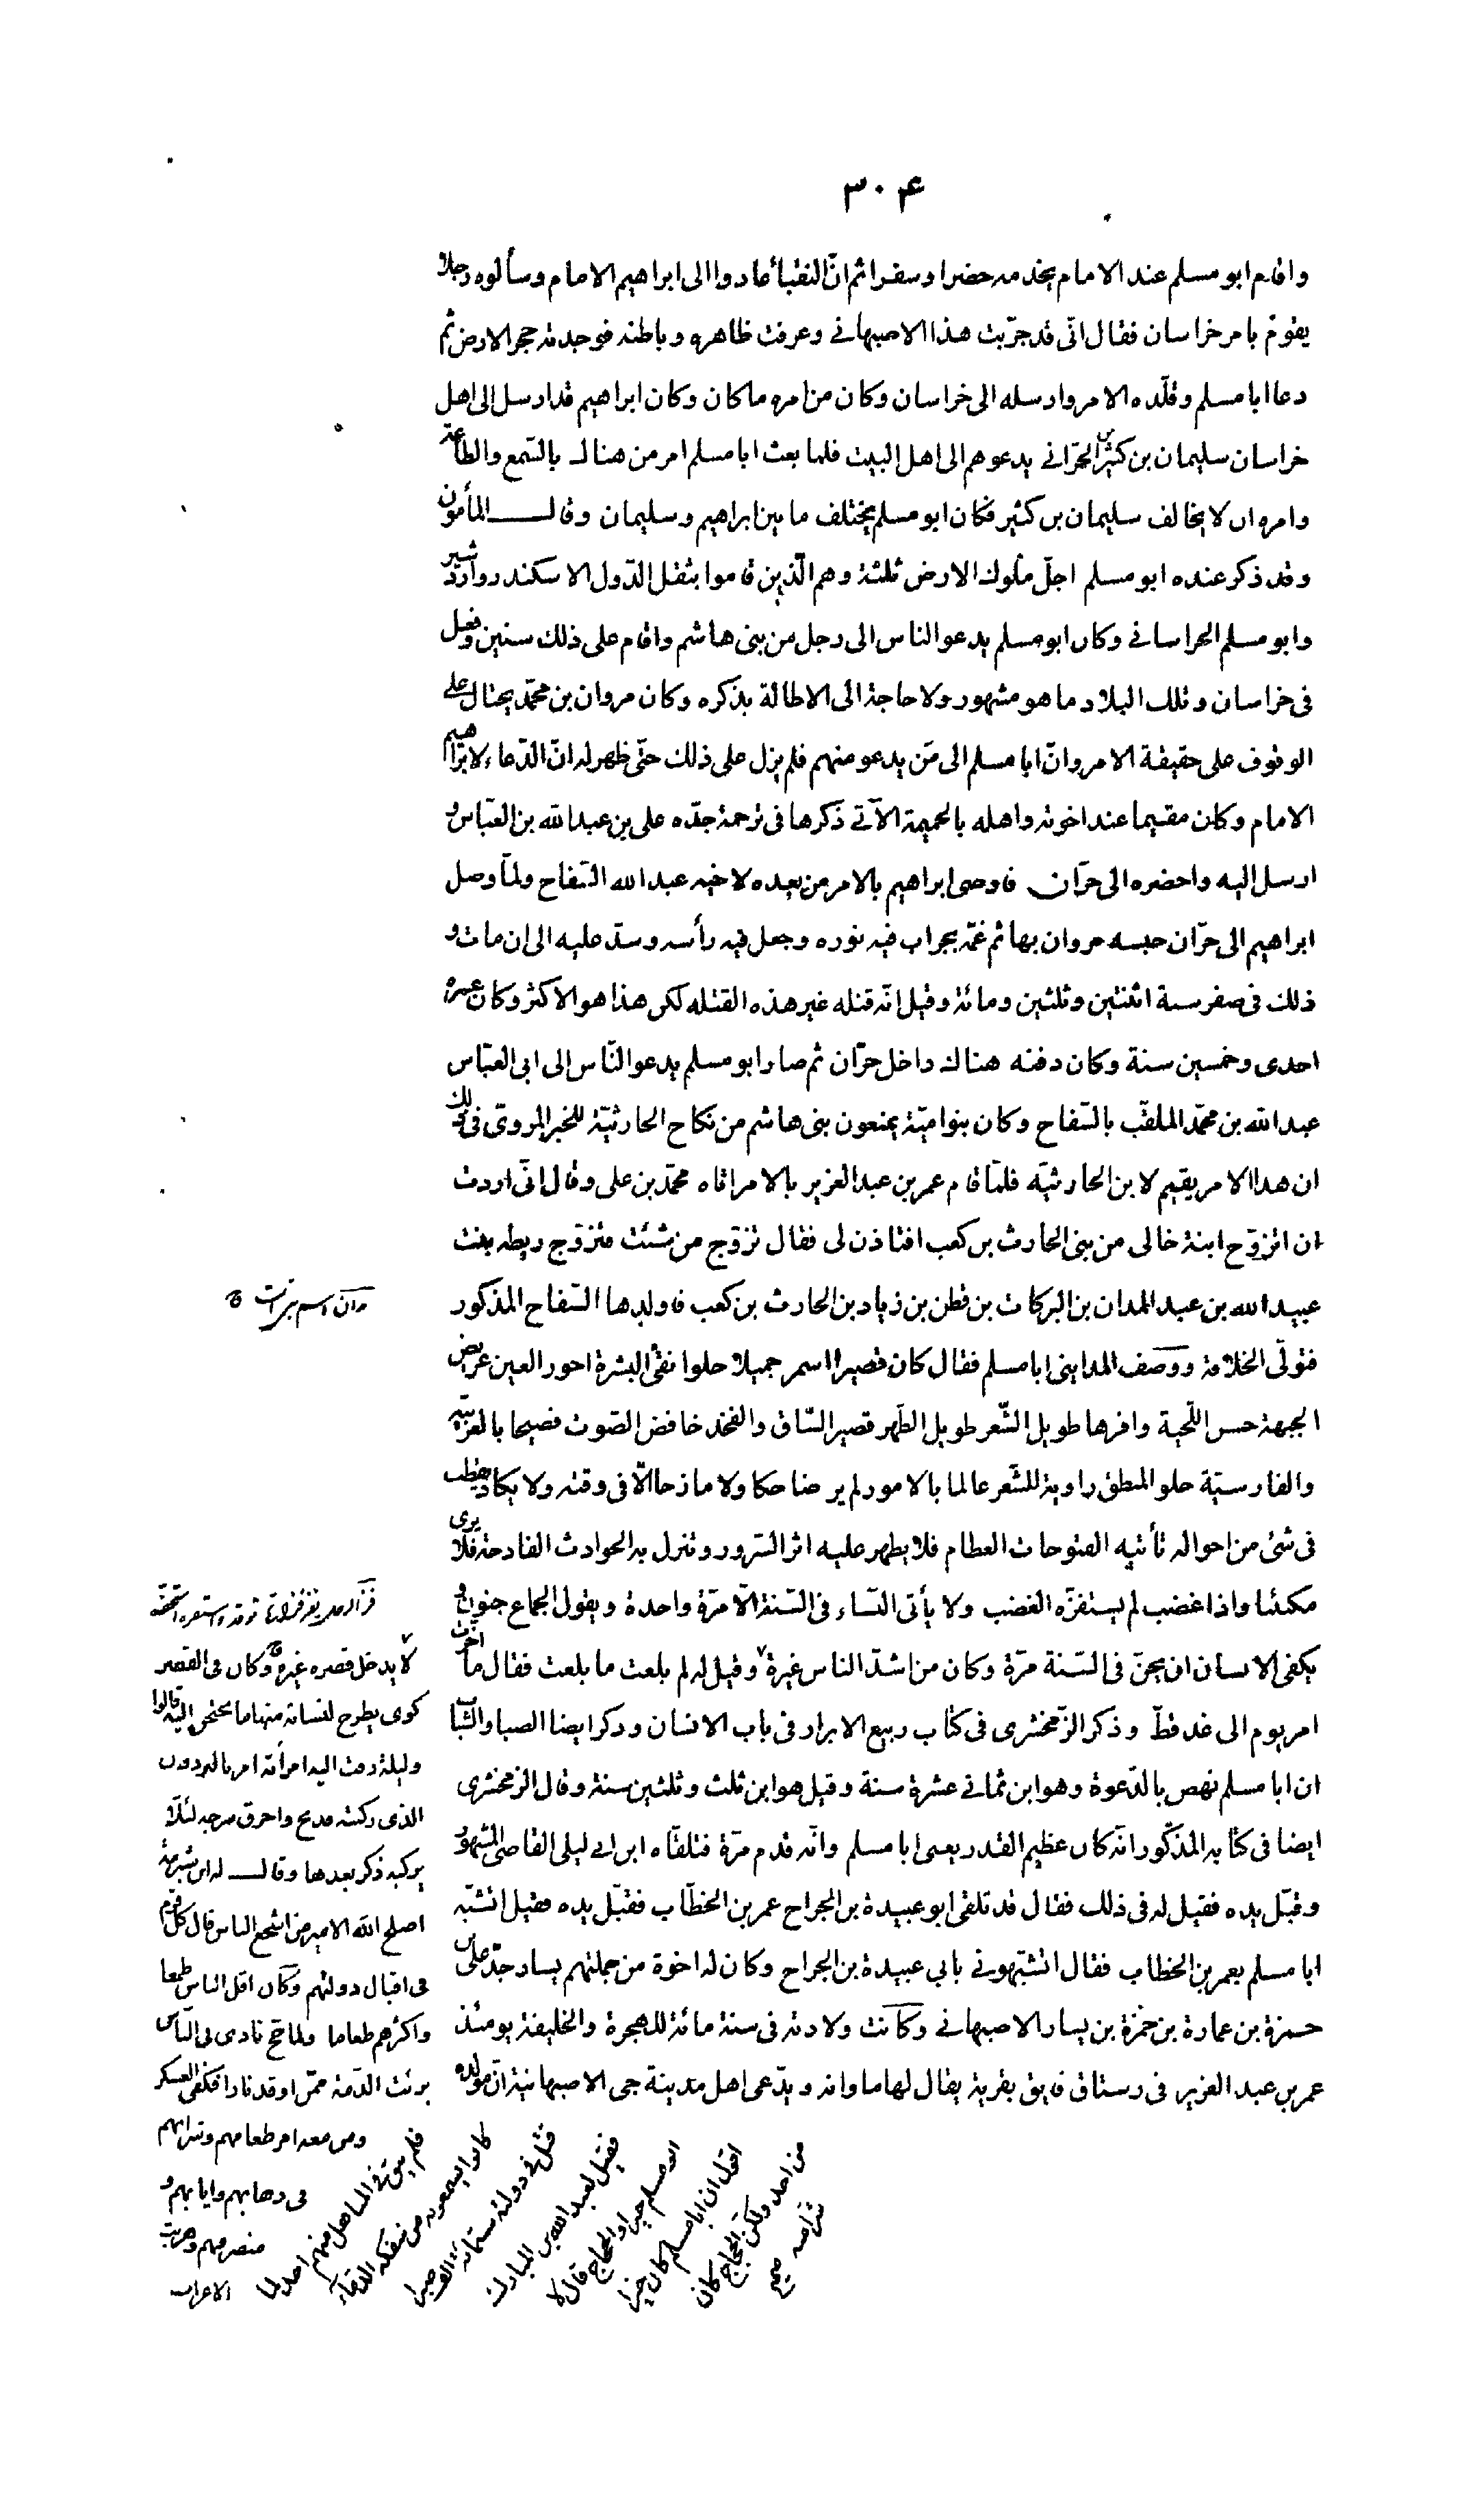 ٣٠۴
واقام ابو مسلم عند الامام يخدمه حضرا وسفرا ثم انّ النقبا عادوا الى ابراهيم الامام وسألوه رجلا
يقوم بامر خراسان فقال انّى قد جرّبت هذا الاصبهانى وعرفت ظاهره وباطنه فوجدته حجر الارض ثم
دعا ابا مسلم وقلّده الامر وارسله الى خراسان وكان من امره ما كان وكان ابراهيم قد ارسل الى اهل
خراسان سليمان بن كثير الحرّانى يدعوهم الى اهل البيت فلما بعث ابا مسلم امر من هناك بالسّمع والطاعة
وامره ان لا يخالف سليمان بن كثير فكان ابو مسلم يختلف ما بين ابراهيم وسليمان وقال المأمون
وقد ذكر عنده ابو مسلم اجلّ ملوك الارض ثلثة وهم الّذين قاموا بثقل الدّول الاسكندر واردشير
وابو مسلم الخراسانى وكان ابو مسلم يدعو الناس الى رجل من بنى هاشم واقام على ذلك سنين وفعل
فى خراسان وتلك البلاد ما هو مشهور ولا حاجة الى الاطالة بذكره وكان مروان بن محمّد يحتال على
الوقوف على حقيقة الامر وانّ ابا مسلم الى مَن يدعو منهم فلم يزل على ذلك حتّى ظهر له انّ الدّعاء لابراهيم
الامام وكان مقيما عند اخوته واهله بالحميمة الآتى ذكرها فى ترجمة جدّه على بن عبد الله بن العبّاس و
ارسل اليه واحضره الى حرّان فاوصى ابراهيم بالامر من بعده لاخيه عبد الله السّفاح ولمّا وصل
ابراهيم الى حرّان حبسه مروان بها ثم غمّه بجراب فيه نوره وجعل فيه رأسه وسدّ عليه الى ان مات و
ذلك فى صفر سنة اثنتين وثلثين ومائة وقيل انّه قتله غير هذه القتله لكن هذا هو الاكثر وكان عمره
احدى وخمسين سنة وكان دفنه هناك داخل حرّان ثم صار ابو مسلم يدعو النّاس الى ابى العبّاس
عبد الله بن محمّد الملقّب بالسّفاح وكان بنو اميّة يمنعون بنى هاشم من نكاح الحارثيّة للخبر المروىّ فى ذلك
ان هذا الامر يقيم لابن الحارثيّه فلمّا قام عمر بن عبد العزيز بالامر اتاه محمّد بن على وقال انّى اردت
ان اتزوّج ابنة خالى من بنى الحارث بن كعب افتاذن لى فقال تزوّج من شئت فتزوّج ريطه بنت
عبيد الله بن عبد المدان بن البركات بن قطن بن زياد بن الحارث بن كعب فاولدها السّفاح المذكور
فتولّى الخلافة ووصف المداينى ابا مسلم فقال كان قصيرا اسمر جميلا حلوا نقىّ البشرة احور العين عريض
الجبهة حسن اللّحية وافرها طويل الشّعر طويل الظّهر قصير السّاق والفخذ خافض الصّوت فصيحا بالعربيّة
والفارسيّة حلو المنطق راوية للشّعر عالما بالامور لم ير ضاحكا ولا مازحا الّا فى وقته ولا يكاد يقطب
فى شئ من احواله تأتيه الفتوحات العظام فلا يظهر عليه اثر السّرور وتنزل به الحوادث الفادحة فلا يرى
مكتئبا واذا غضب لم يستفزّه الغضب ولا يأتى النّساء فى السّنة الّا مرّة واحدة ويقول الجماع جنون و
يكفى الانسان ان يجنّ فى السّنة مرّة وكان من اشدّ الناس غيرة وقيل له لم بلغت ما بلغت فقال ما اخّرت
امر يوم الى غد قطّ وذكر الزّمخشرى فى كتاب ربيع الابرار فى باب الانسان وذكر ايضا الصبا والشباب
ان ابا مسلم نهض بالدّعوة وهو ابن ثمانى عشرة سنة وقيل هو ابن ثلث وثلثين سنة وقال الزمخشرى
ايضا فى كتابه المذكور انّه كان عظيم القدر يعنى ابا مسلم وانّه قدم مرّة فتلقّاه ابن ابى ليلى القاضى المشهور
وقبّل يده فقيل له فى ذلك فقال قد تلقى ابو عبيدة بن الجراح عمر بن الخطّاب فقبّل يده فقيل اتشبّه
ابا مسلم بعمر بن الخطاب فقال اتشبّهونى بابى عبيدة بن الجراح وكان له اخوة من جملتهم يسار جدّ على بن
حمزة بن عمارة بن حمزة بن يسار الاصبهانى وكانت ولادته فى سنة مائة للهجرة والخليفة يومئذ
عمر بن عبد العزيز فى رستاق فايق بقرية يقال لها ماوانه ويدّعى اهل مدينة جى الاصبهانية انّ مولده
لا يدخل قصره غيره وكان فى القصر
كوى يطرح لنسائه منها ما يحتجن اليه قالوا
وليلة زفت اليه امرأته امر بالبرذون
الذى ركبته فذبح واحرق سرجه لئلّا
يركبه ذكر بعدها وقال له ابن شبرمة
اصلح الله الامير من اشجع الناس قال كل قوم
فى اقبال دولتهم وكان اقل الناس طمعا
واكثرهم طعاما ولما حج نادى فى النّاس
برئت الذّمة ممّن اوقد نارا فكفى العسكر
ومن معه امر طعامهم وشرابهم
فى ذهابهم وايابهم و
منصرفهم وهربت
الاعراب
فلم يبق فى المناهل منهم احد لما
كانوا يسمعونه من سفكه الدّماء
قتل فى دولته ستمائة الف صبرا
فقيل لعبد الله بن المبارك
ابو مسلم خير او الحجاج قال لا
اقول ان ابا مسلم كان خيرا
من احد ولكن الحجاج كان
شرا منه صح